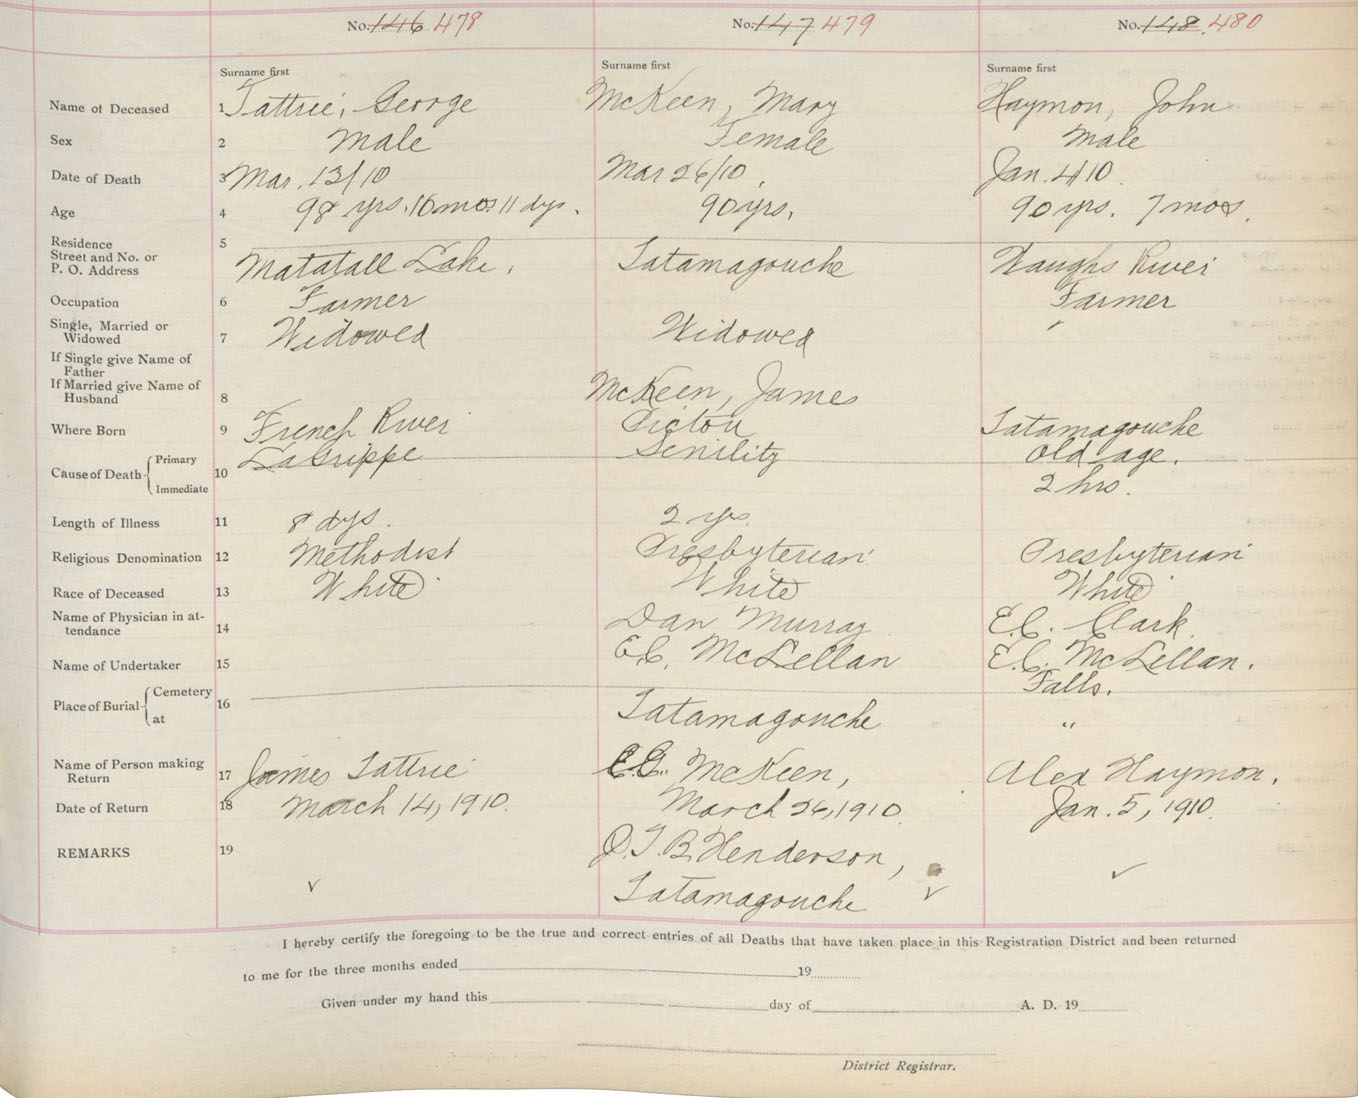 No. 146 478 No. 147 479 No. 148. 480
Surname first Surname first Surname first
Name of Deceased 1 Tattrie, George McKeen, Mary Haymon, John
Sex 2 Male Female Male
Date of Death 3 Mar. 13/10 Mar 26/10. Jan. 4/10
Age 4 98 yrs. 10 mos. 11 dys. 90 yrs. 90 yrs. 7 mos.
Residence 5
Street and No. or
P. O. Address Matatall Lake. Tatamagouche Waughs River
Occupation 6 Farmer Farmer
Single, Married or
Widowed 7 Widowed Widowed
If Single give Name of
Father
If Married give Name of
Husband 8 McKeen, James
Where Born 9 French River Pictou Tatamagouche
Cause of Death Primary 10 LaGrippe Senility Old age.
Immediate 2 hrs.
Length of Illness 11 8 dys. 2 yrs.
Religious Denomination 12 Methodist Presbyterian Presbyterian
Race of Deceased 13 White White White
Name of Physician in at-
tendance 14 Dan Murray E.C. Clark.
Name of Undertaker 15 E.C. McLellan E.C. McLellan.
Place of Burial Cemetery 16 Falls.
at Tatamagouche "
Name of Person making
Return 17 James Tattrie McKeen, Alex Haymon.
Date of Return 18 March 14, 1910. March 26, 1910. Jan. 5, 1910.
REMARKS 19 J.T.B. Henderson,
Tatamagouche
I hereby certify the foregoing to be the true and correct entries of all Deaths that have taken place in this Registration District and been returned
to me for the three months ended 19
Given under my hand this day of A. D. 19
District Registrar.